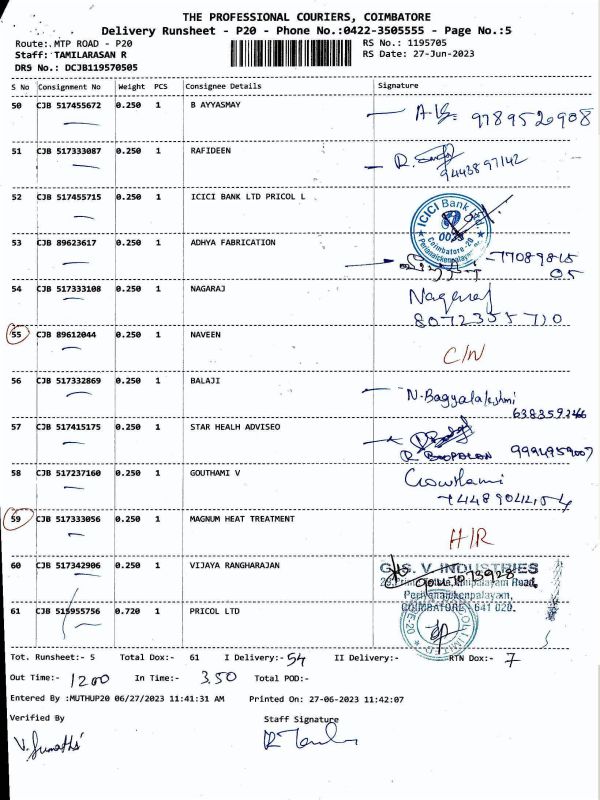 THE PROFESSIONAL COURIERS, COIMBATORE
Delivery Runsheet - P20 - Phone No.:0422-3505555 - Page No.:5
Route:.MTP ROAD - P20
RS No.: 1195705
Staff: TAMILARASAN R
RS Date: 27-Jun-2023
DRS No.: DCJB119570505
S No Consignment No Weight PCS Consignee Details Signature
50 CJB 517455672 0.250 1 B AYYASMAY
9789526908
51 CJB 517333087 0.250 1 RAFIDEEN
9443897142
52 CJB 517455715 0.250 1 ICICI BANK LTD PRICOL L
ICICI Bank Ltd.
Coimbatore -20
53 CJB 89623617 0.250 1 ADHYA FABRICATION
54 CJB 517333108 0.250 1 NAGARAJ
Nagaraj
8072355710
55 CJB 89612044 0.250 1 NAVEEN
C/N
56 CJB 517332869 0.250 1 BALAJI
N.Bagyalakshmi
6383592466
57 CJB 517415175 0.250 1 STAR HEALH ADVISEO
9994959007
58 CJB 517237160 0.250 1 GOUTHAMI V
Gowthami
59 CJB 517333056 0.250 1 MAGNUM HEAT TREATMENT
H/R
60 CJB 517342906 0.250 1 VIJAYA RANGHARAJAN
V. INDUSTRIES
Road,
Periyanaickenpalayam,
COIMBATORE - 641 020.
61 CJB 515955756 0.720 1 PRICOL LTD
Tot. Runsheet:- 5 Total Dox:- 61 I Delivery:- 54 II Delivery:- RTN Dox:- 7
Out Time:- 1200 In Time:- 3.50 Total POD:-
Entered By :MUTHUP20 06/27/2023 11:41:31 AM Printed On: 27-06-2023 11:42:07
Verified By Staff Signature
V. Sumathi